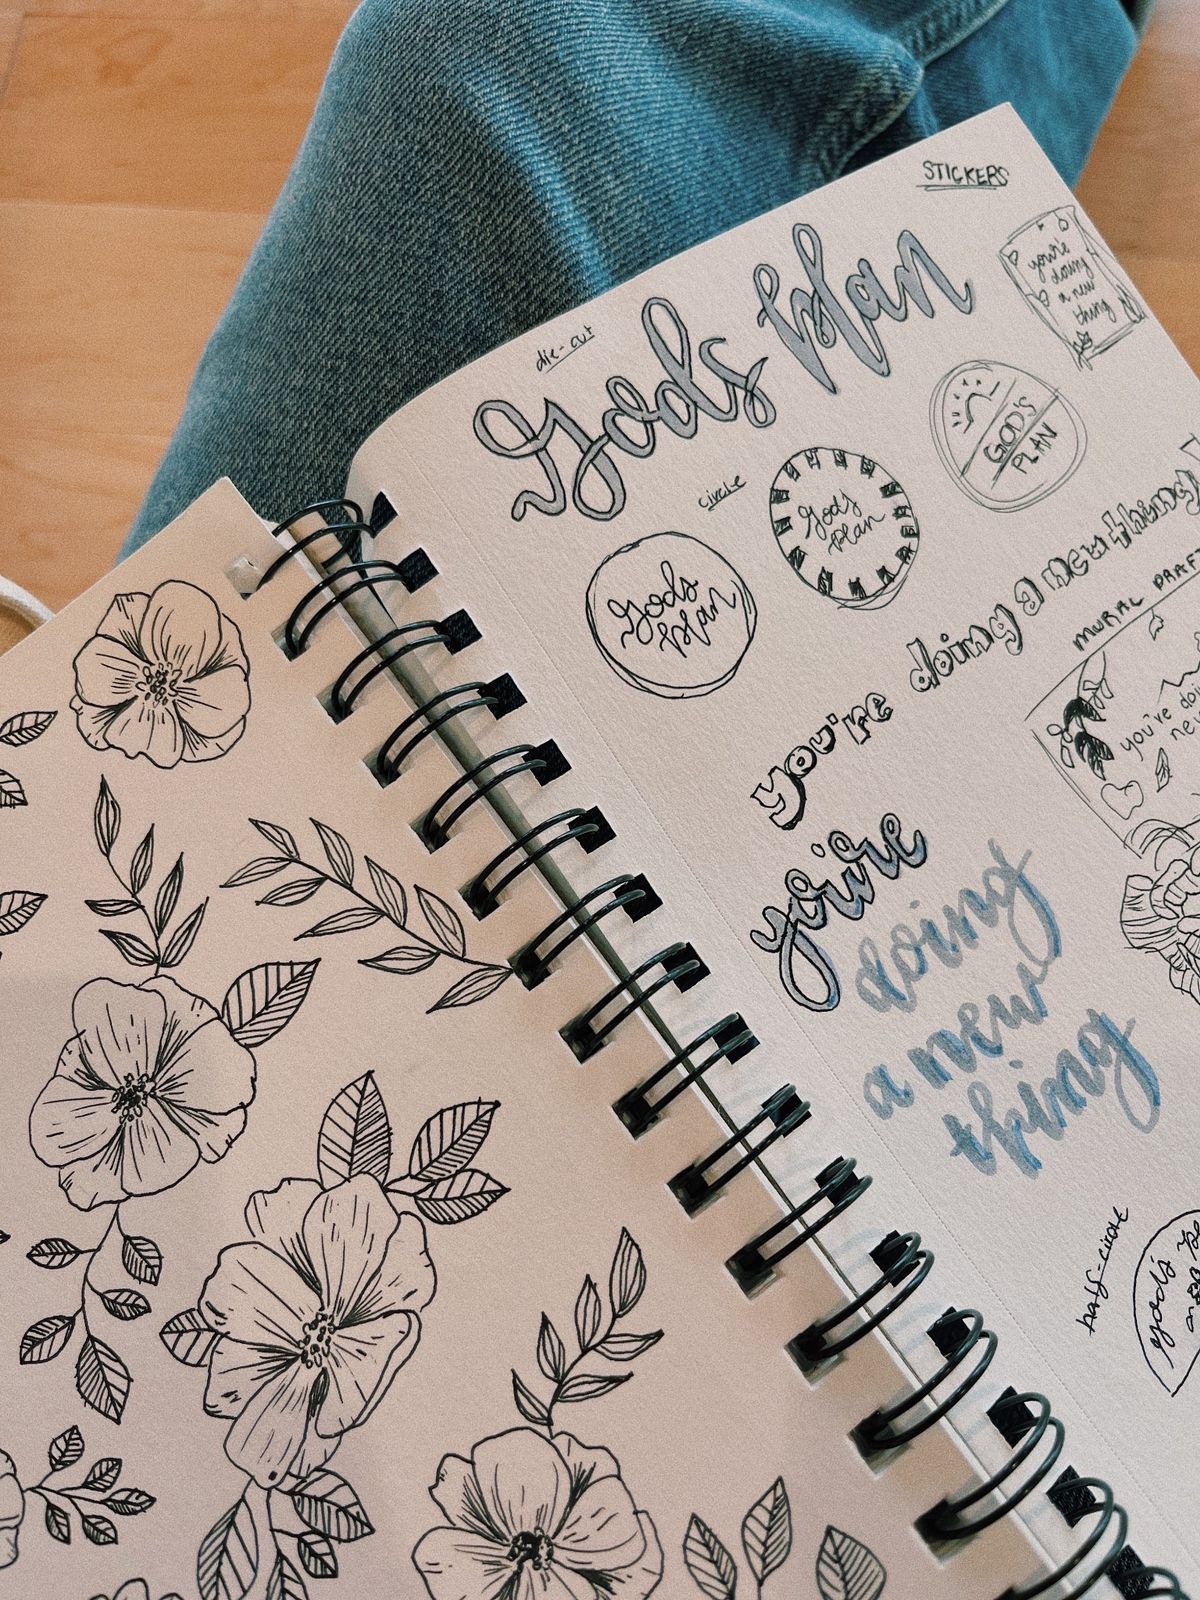 STICKERS
die-cut
Gods Plan
you're
doing
a new
thing
circle
Gods
Plan
God's
Plan
GOD'S
PLAN
you're doing a new thing!
MURAL DRAFT
you're doi
new
you're
doing
a new
thing
half-circle
god's